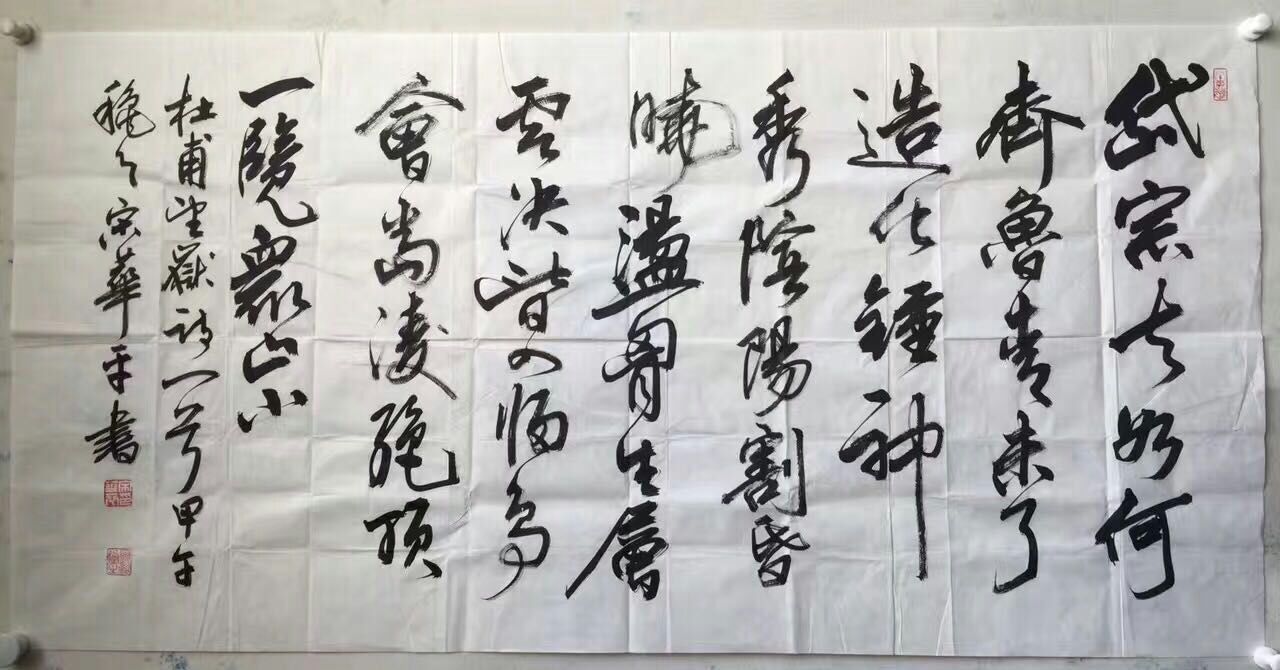 岱宗夫如何
齊魯青未了
造化鍾神
秀陰陽割昏
曉盪胷生層
雲決眥入歸鳥
會當淩絕頂
一覽衆山小
杜甫望嶽詩一首甲午
穐宋華平書